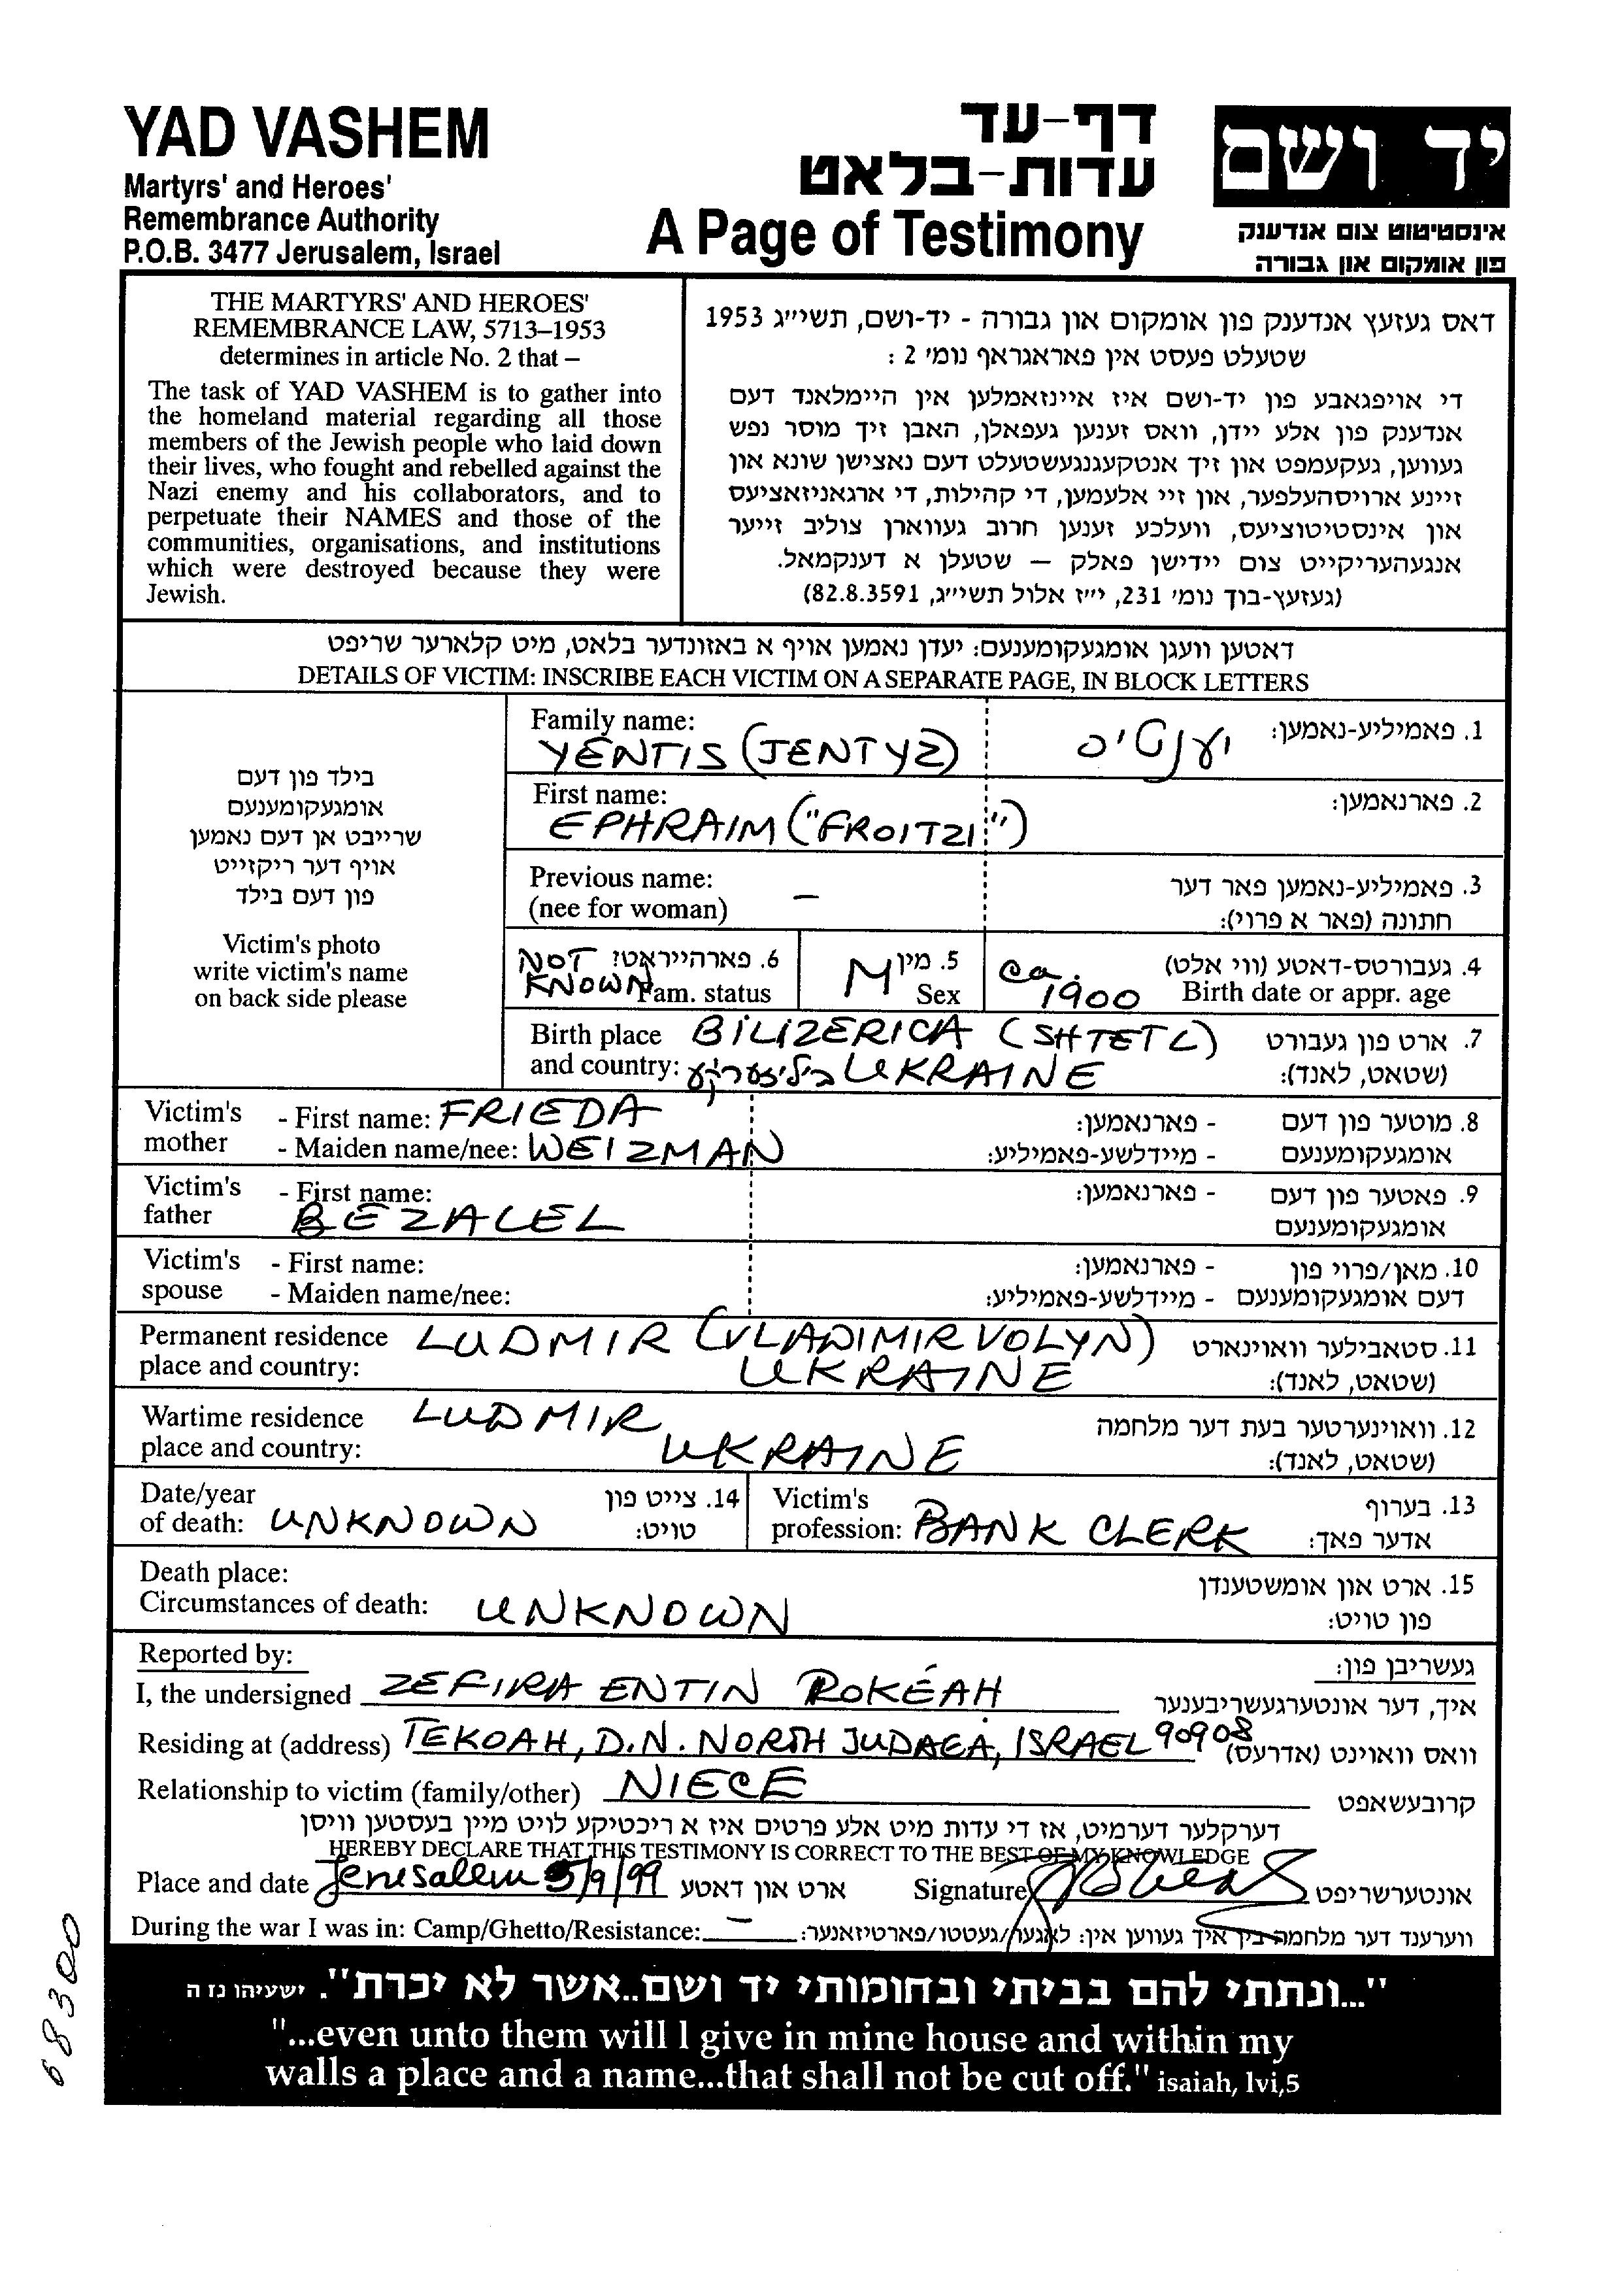 YAD VASHEM
Martyrs' and Heroes'
Remembrance Authority
P.O.B. 3477 Jerusalem, Israel
דף-עד
עדות-בלאט
A Page of Testimony
יד ושם
אינסטיטוט צום אנדענק
פון אומקום און גבורה
THE MARTYRS' AND HEROES'
REMEMBRANCE LAW, 5713–1953
determines in article No. 2 that –
The task of YAD VASHEM is to gather into
the homeland material regarding all those
members of the Jewish people who laid down
their lives, who fought and rebelled against the
Nazi enemy and his collaborators, and to
perpetuate their NAMES and those of the
communities, organisations, and institutions
which were destroyed because they were
Jewish.
דאס געזעץ אנדענק פון אומקום און גבורה - יד-ושם, תשי״ג 1953
שטעלט פעסט אין פאראגראף נומ׳ 2 :
די אויפגאבע פון יד-ושם איז איינזאמלען אין היימלאנד דעם
אנדענק פון אלע יידן, וואס זענען געפאלן, האבן זיך מוסר נפש
געווען, געקעמפט און זיך אנטקעגנגעשטעלט דעם נאצישן שונא און
זיינע ארויסהעלפער, און זיי אלעמען, די קהילות, די ארגאניזאציעס
און אינסטיטוציעס, וועלכע זענען חרוב געווארן צוליב זייער
אנגעהעריקייט צום יידישן פאלק — שטעלן א דענקמאל.
(געזעץ-בוך נומ׳ 231, י״ז אלול תשי״ג, 82.8.3591)
דאטען וועגן אומגעקומענעם: יעדן נאמען אויף א באזונדער בלאט, מיט קלארער שריפט
DETAILS OF VICTIM: INSCRIBE EACH VICTIM ON A SEPARATE PAGE, IN BLOCK LETTERS
בילד פון דעם
אומגעקומענעם
שרייבט אן דעם נאמען
אויף דער ריקזייט
פון דעם בילד
Victim's photo
write victim's name
on back side please
Family name: 1. פאמיליע-נאמען:
YENTIS (JENTYS) יענטיס
First name: 2. פארנאמען:
EPHRAIM ("FROITZI")
Previous name: 3. פאמיליע-נאמען פאר דער
(nee for woman) – חתונה (פאר א פרוי):
NOT KNOWN 6. פארהייראט? Fam. status
M 5. מין Sex
ca. 1900 4. געבורטס-דאטע (ווי אלט)
Birth date or appr. age
Birth place BILIZERICA (SHTETL) 7. ארט פון געבורט
and country: בילizערקע UKRAINE (שטאט, לאנד):
Victim's - First name: FRIEDA - פארנאמען: 8. מוטער פון דעם
mother - Maiden name/nee: WEIZMAN - מיידלשע-פאמיליע: אומגעקומענעם
Victim's - First name: - פארנאמען: 9. פאטער פון דעם
father BEZALEL אומגעקומענעם
Victim's - First name: - פארנאמען: 10. מאן/פרוי פון
spouse - Maiden name/nee: - מיידלשע-פאמיליע: דעם אומגעקומענעם
Permanent residence LUDMIR (VLADIMIR VOLYN) 11. סטאבילער וואוינארט
place and country: UKRAINE (שטאט, לאנד):
Wartime residence LUDMIR 12. וואוינערטער בעת דער מלחמה
place and country: UKRAINE (שטאט, לאנד):
Date/year 14. צייט פון
of death: UNKNOWN טויט:
Victim's 13. בערוף
profession: BANK CLERK אדער פאך:
Death place: 15. ארט און אומשטענדן
Circumstances of death: UNKNOWN פון טויט:
Reported by: געשריבן פון:
I, the undersigned ZEFIRA ENTIN ROKÉAH איך, דער אונטערגעשריבענער
Residing at (address) TEKOAH, D.N. NORTH JUDAEA, ISRAEL 90908 וואס וואוינט (אדרעס)
Relationship to victim (family/other) NIECE קרובעשאפט
דערקלער דערמיט, אז די עדות מיט אלע פרטים איז א ריכטיקע לויט מיין בעסטען וויסן
HEREBY DECLARE THAT THIS TESTIMONY IS CORRECT TO THE BEST OF MY KNOWLEDGE
Place and date Jerusalem 5/9/99 ארט און דאטע Signature אונטערשריפט
During the war I was in: Camp/Ghetto/Resistance: – ווערענד דער מלחמה בין איך געווען אין: לאגער/געטטו/פארטיזאנער:
"...ונתתי להם בביתי ובחומותי יד ושם..אשר לא יכרת". ישעיהו נז ה
"...even unto them will I give in mine house and within my
walls a place and a name...that shall not be cut off." isaiah, lvi,5
68300